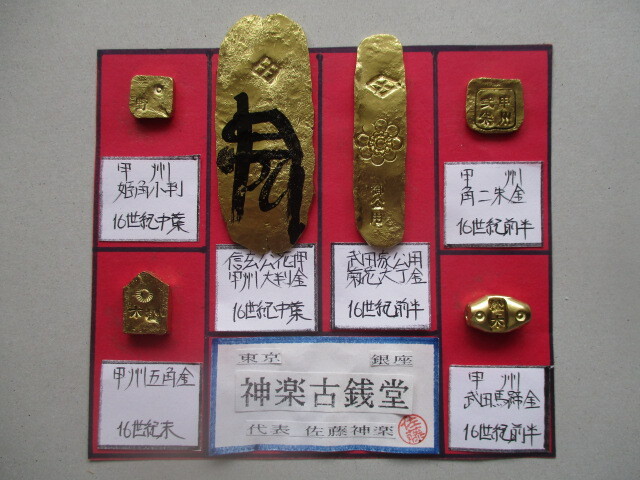 甲州
16世紀中葉
信玄公花押
甲州大判金
16世紀中葉
武田家公用
菊花大丁金
16世紀前半
甲州
甲州
角二朱金
16世紀前半
甲州五角金
16世紀末
東京 銀座
神楽古銭堂
代表 佐藤神楽
佐藤
甲州
武田馬蹄金
16世紀前半